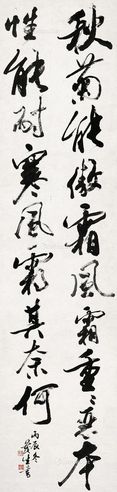 秋菊能傲霜風霜重々惡本
性能耐寒風霜其奈何
丙辰冬